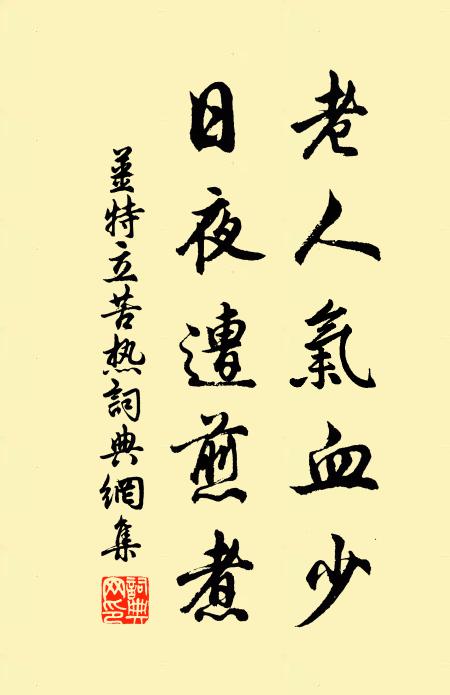 老人氣血少
日夜遭煎煮
薑特立苦热詞典網集
詞典网印